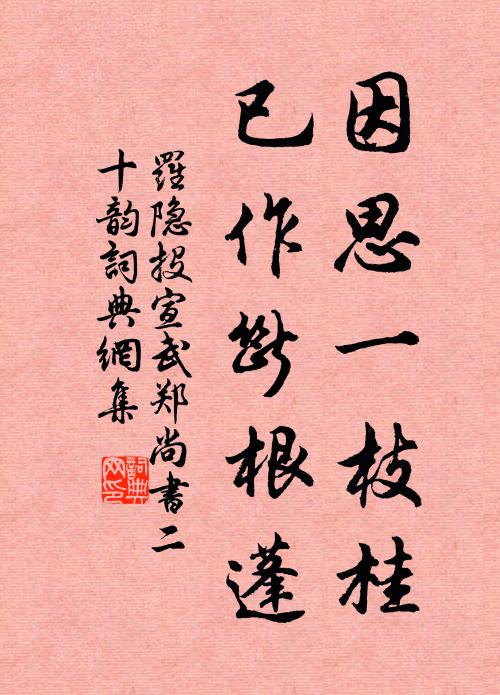 因思一枝桂
已作斷根蓬
羅隐投宣武郑尚書二
十韵詞典網集
詞典
网印